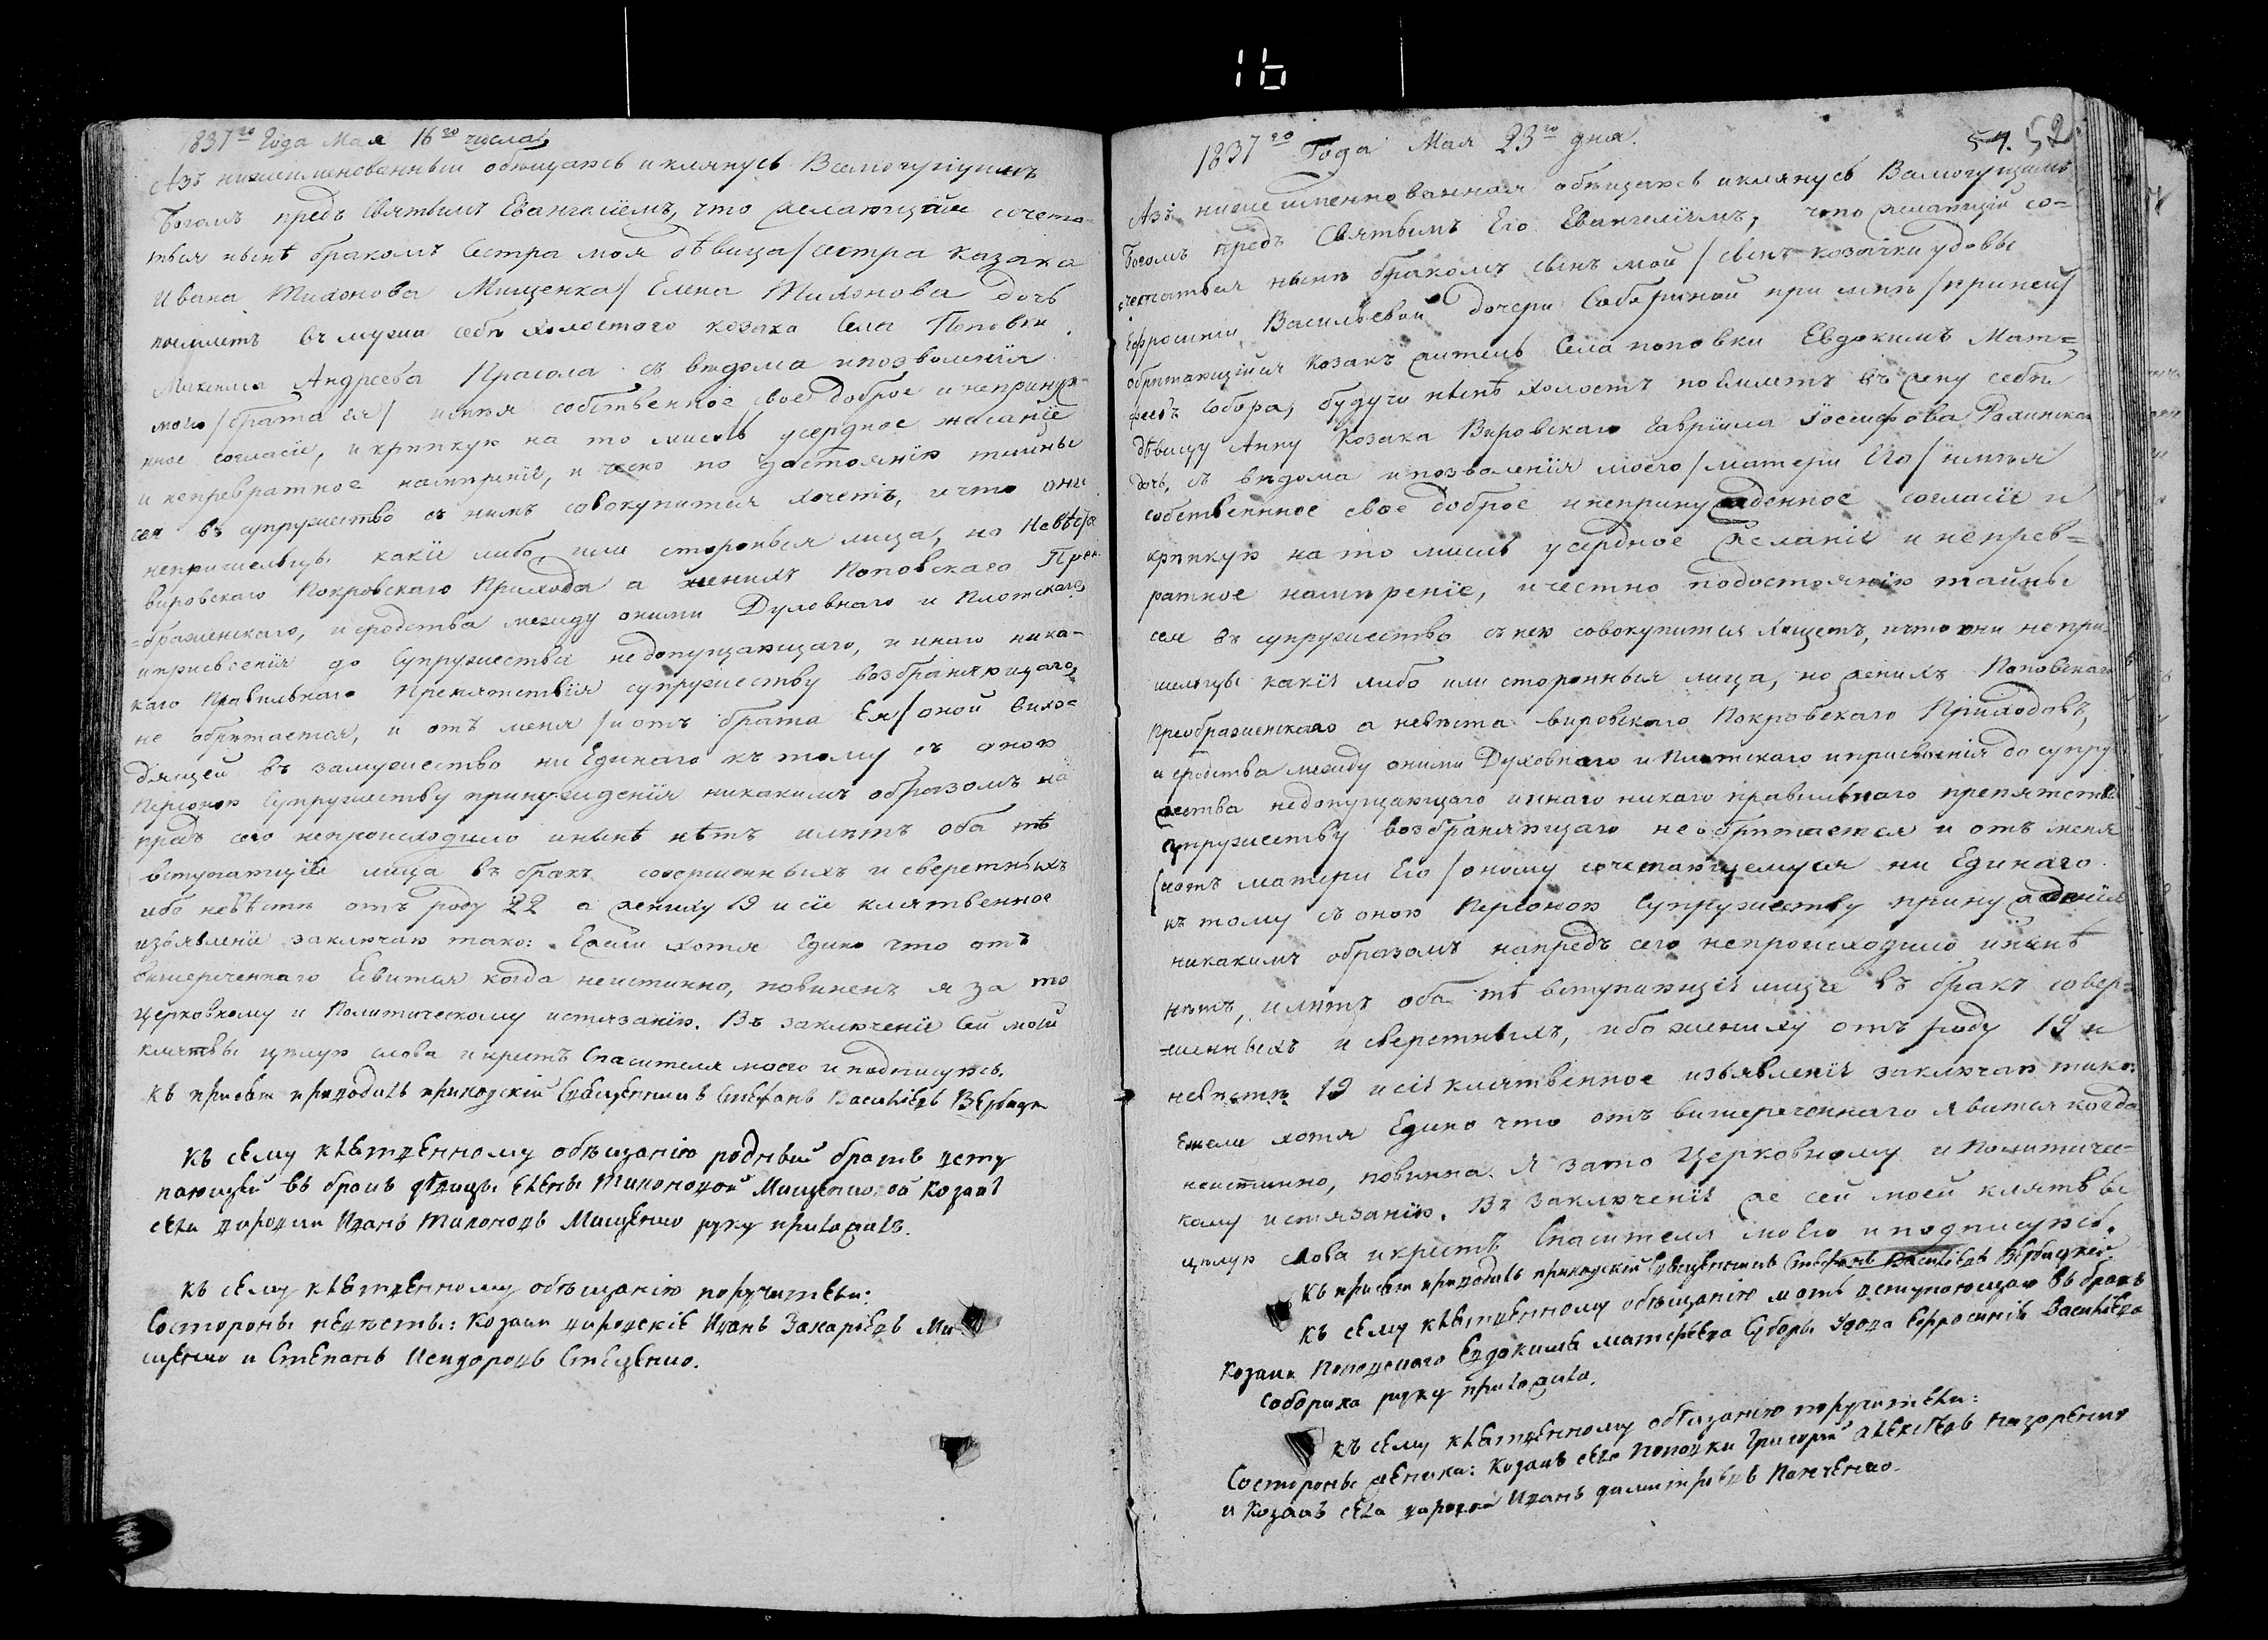 1837го Года Мая 16го числа
Азъ нижеименованный обѣщаюсь и клянусь Всемогущимъ
Богомъ предъ Святымъ Евангелiемъ, что желающая сочета-
ться нынѣ бракомъ Сестра моя дѣвица /сестра Казака
Ивана Тихонова Мищенка/ Елена Тихонова дочь
поемлетъ въ мужа себѣ холостого козака Села Поповки
Михаила Андреева Прасола съ вѣдома и позволенiя
моего /брата ея/ имѣя собственное свое доброе и непринуж-
нное согласiе, и крѣпкую на то мысль усердное желанiе
и непревратное намѣренiе, и честно по достоянiю тайны
сея въ супружество съ нимъ совокупится хочетъ, и что они
непришельцы какiе либо, или сторонныя лица, но Невѣста
Вировского Покровскаго Прихода а женихъ Поповскаго Прео
=браженскаго, и сродства между оными Духовнаго и Плотскаго
и присвоенiя до Супружества недопущающаго, и инаго ника-
каго Правильнаго Препятствiя супружеству возбраняющаго,
не обрѣтается, и отъ меня /и отъ брата Ея/ оной вихо=
дящей въ замужество ни Единаго къ тому съ оною
Персоною Супружеству принужденiя никакимъ образомъ на
предъ сего непроисходило и нынѣ нѣтъ и лѣтъ оба тѣ
вступающiе лица въ бракъ совершенныхъ и сверстныхъ
ибо невѣстѣ отъ роду 22 а жениху 19 и сiе клятвенное
изъявленiе заключаю тако: Ежели хотя Едино что отъ
вишереченнаго Явится когда неистинно, повиненъ я за то
Церковному и Политическому истязанiю. Въ заключенiе Сей моей
клятвы цѣлую слова и крестъ Спасителя моего и подписуюсь.
Къ присягѣ приводилъ приходскiй Священникъ Стефанъ Васильевъ Вербицкiй
Къ сему клятвенному обѣщанiю родный братъ всту
пающей въ бракъ дѣвицы Елены Тихоновой Мищенковой Козакъ
села Вировки Иванъ Тихоновъ Мищенко руку приложилъ.
Къ сему клятвенному обѣщанiю поручители:
Состороны невѣсты: Козаки вировскiе Иванъ Захарiевъ Ми
щенко и Степанъ Исидоровъ Стеценко.
54. 52
1837го Года Мая 23го дня.
Азъ нижеименнованная обѣщаюсь и клянусь Всемогущимъ
Богомъ предъ Святымъ Его Евангелiемъ, что желающiй со-
четаться нынѣ бракомъ сынъ мой /сынъ козачки удовы
Ефросинiи Васильевой дочери Саборихой при мнѣ /при ней/
обрѣтающiйся Козакъ житель Села поповки Евдокимъ Мат=
феевъ собора, будучи нынѣ холостъ поемлетъ въ жену себѣ
дѣвицу Анну Козака Вировскаго Гаврiила Iосифова
дочь, съ вѣдома и позволенiя моего /матери Его/ имѣя
собственнное свое доброе и непринужденное согласiе и
крѣпкую на то мысль усердное желанiе и непрев=
ратное намѣренiе, и честно по достоянiю тайны
сея въ супружество съ нею совокупится хощетъ, и что они непри=
шельцы какiе либо или сторонныя лица, но женихъ Поповскаго
Преображенскаго а невѣста вировскаго Покровскаго Приходовъ,
и сродства между оними Духовнаго и Плотскаго и присвоенiя до супру
жества недопущающаго и инаго никаго правильнаго препятствiя
супружеству возбраняющаго необрѣтается и отъ меня
/и отъ матери Его/ оному сочетающемуся ни Единаго
къ тому съ оною Персоною Супружеству принужденiя
никакимъ образомъ напредъ сего непроисходило и нынѣ
нѣтъ, и лѣтъ оба тѣ вступающiе лица въ бракъ совер=
=шенныхъ и сверстныхъ, ибо жениху отъ роду 19 и
невѣстѣ 19 и сiе клятвенное изъявленiе заключаю тако:
Ежели хотя Едино что отъ вишереченнаго явится когда
неистинно, повинна Я за то Церковному и Политичес-
кому истязанiю. Въ заключенiе же сей моей клятвы
цѣлую слова и крестъ Спасителя моего и подписуюсь.
Къ присягѣ приводилъ приходскiй Священникъ Стефанъ Васильевъ Вербицкiй
Къ сему клятвенному обѣщанiю мать вступающаго въ бракъ
Козака Поповскаго Евдокима матфѣева Саборы Удова Ефросинiя Васильева
Собориха руку приложила.
Къ сему клятвенному обѣщанiю поручители:
Состороны жениха: Козакъ села Поповки Григорiй Алексѣевъ Назаренко
и Козакъ села Вировки Иванъ Димитрiевъ Панченко.